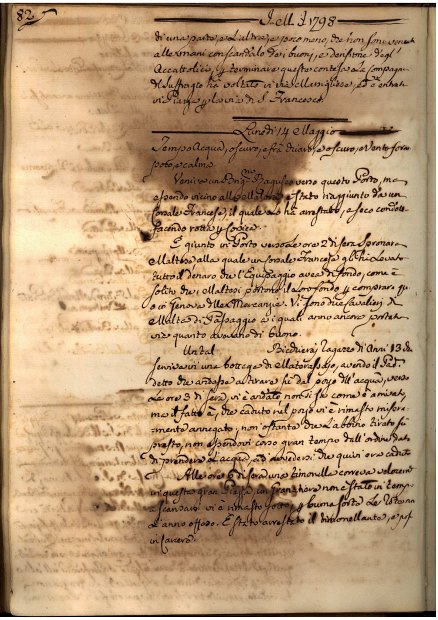 82
Dell' 1798
di una parte, e l'altra, e poco meno, che non sono venuti
alle mani con scandalo de' buoni, e derisione degl'
Accattolici, e terminare questo contesa la Compagnia
del Suffragio ha voltato in via
via Piazza, per la via di S. Francesco.
Lunedì 14 Maggio
Tempo Acqua, oscuro, e frà chiaro, e oscuro, e Vento foraa
poto, e calma
Veniva un Raguseo verso questo Porto, ma
essendo vicino alla è stato raggiunto da un
Corsale Francese, il quale lo ha arrestato, e seco condotto
facendo rotta per Corsica.
È giunto in Porto verso le ore 2 di sera Speronara
Maltese alla quale un Corsale Francese gl'ha levato
tutto il denaro che l'Equipaggio avea di fondo, come è
solito che i Maltesi portono il loro fondo per comprare qui
o in Genova delle Mercanzie. Vi sono due Cavalieri di
Malta di Passaggio a i quali anno ancora portato
via quanto avevano di buono.
Un tal ragazzo di Anni 13 che
serviva in una bottega di Materassajo, avendo il Pad.
detto che andasse a tirare sù del pozzo dell'acqua, verso
le ore 3 di sera, vi è andato, non si sà come è arrivato,
ma il fatto è, che caduto nel pozzo vi è rimasto misera-
mente annegato, non ostante che l'abbino tirato su
presto, non essendovi corso gran tempo dall'ordine dato
di prendere l'acqua, ed avvedersi che quivi era caduto
Alle ore 6 di sera una timonella correva volendo
in questa gran Piazza, un non è stato in tempo
a scansarsi vi è rimasto sotto, e per buona sorte le ruote non
l'anno offeso. È stato arrestato il timonellante, e posto
in carcere.